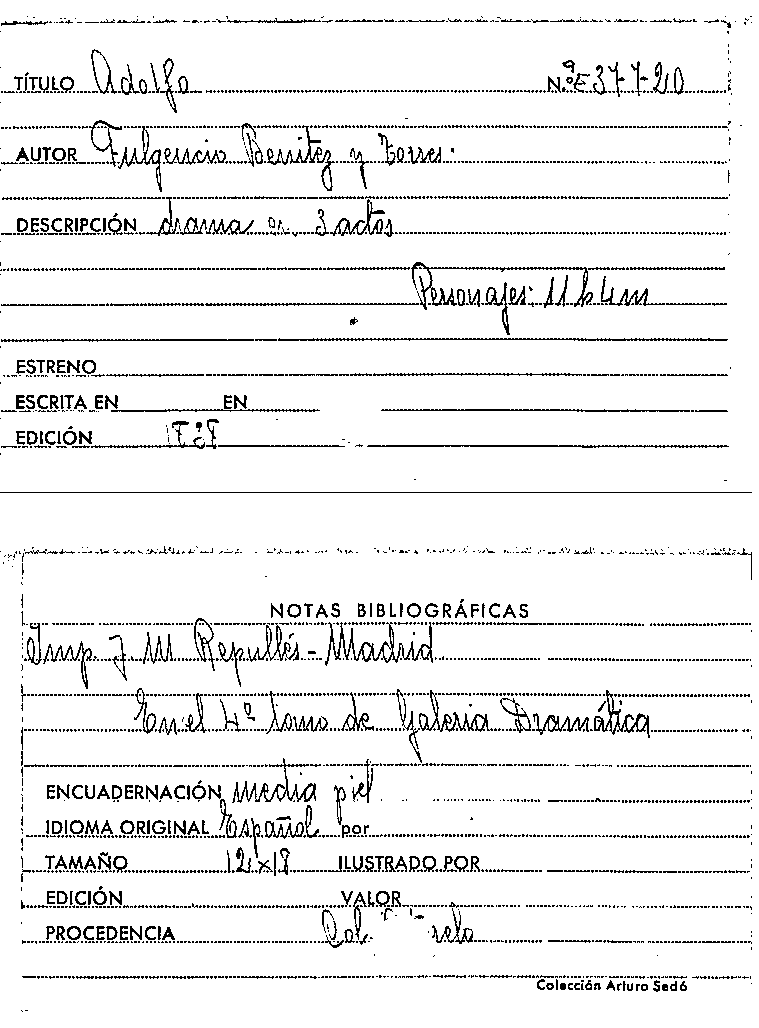 TÍTULO Adolfo N.º E 37-7-20
AUTOR Fulgencio Benitez y Torres.
DESCRIPCIÓN drama en 3 actos
Personajes: 11 h 4 m
ESTRENO
ESCRITA EN EN
EDICIÓN
NOTAS BIBLIOGRÁFICAS
Imp. J. M Repullés - Madrid
En el 4º tomo de Galeria Dramática
ENCUADERNACIÓN media piel
IDIOMA ORIGINAL Español por
TAMAÑO 12x18 ILUSTRADO POR
EDICIÓN VALOR
PROCEDENCIA Col.
Colección Arturo Sedó